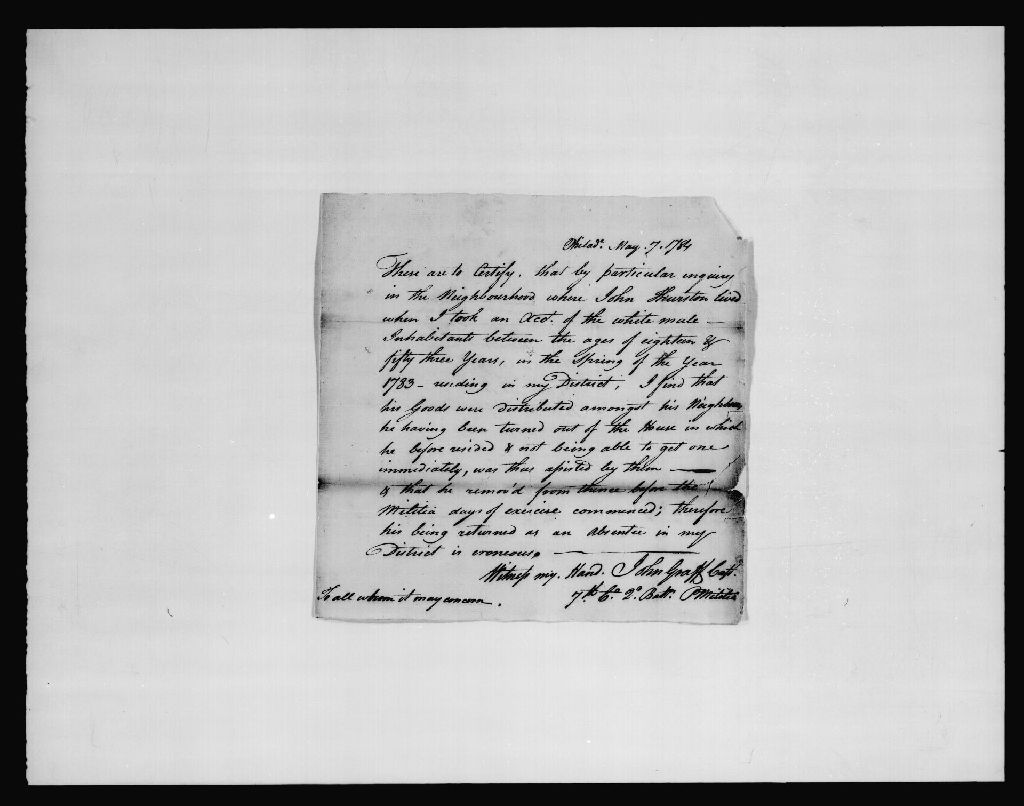 Philada. May. 7. 1784
These are to Certify. that by particular inquiry
in the Neighbourhood where John Thurston lived
when I took an Acct. of the white male —
Inhabitants between the ages of eighteen &
fifty three Years, in the Spring of the Year
1783 – residing in my District, I find that
his Goods were distributed amongst his Neighbours
he having been turned out of the House in which
he before resided & not being able to get one
immediately, was thus assisted by them —
& that he remov'd from thence before the
Militia days of exercise commenced; therefore
his being returned as an Absentee in my
District is erroneous. —
Witness my. Hand. John Graff Capt.
7th Co. 2d. Batt. P Militia
To all whom it may concern.